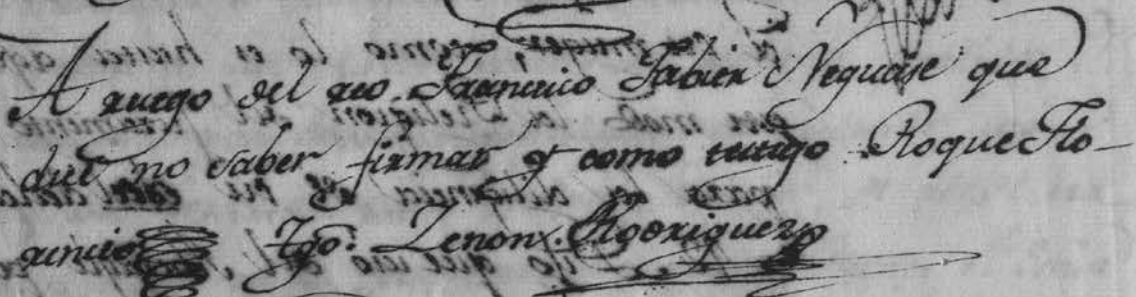 A ruego del reo Francisco Jabier Neguaje que
dice no saber firmar y como testigo Roque Flo-
rencio Tgo. Zenon Rodriguez